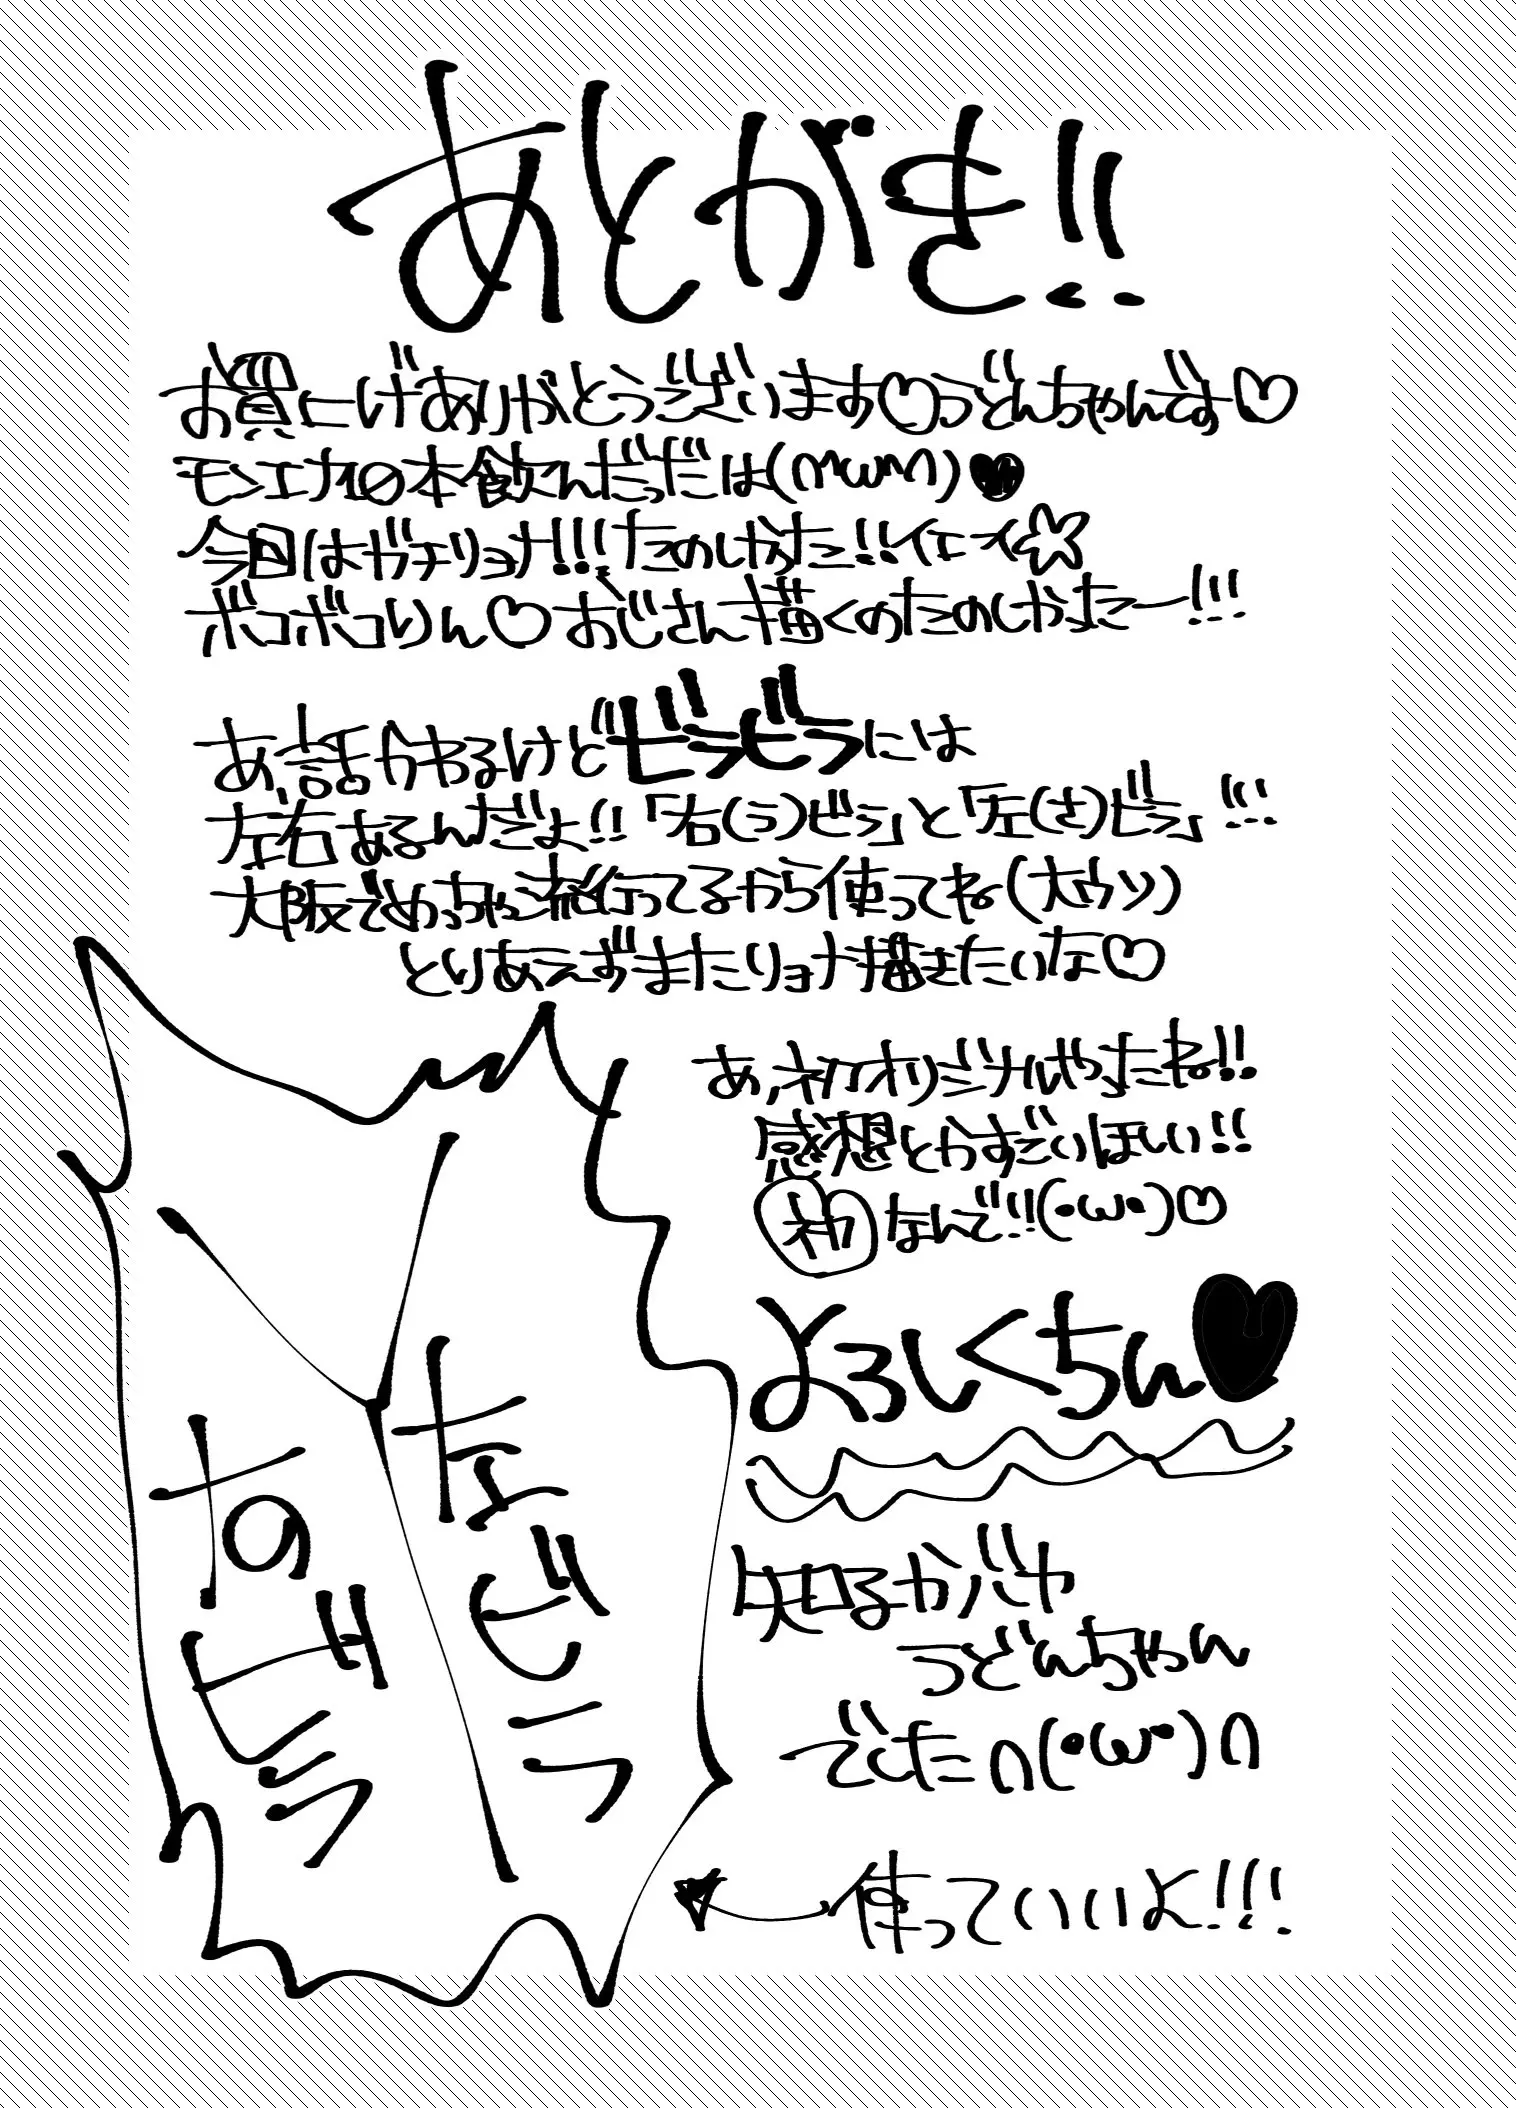 あとがき!!
お買上げありがとうございます♡うどんちゃんです♡
モンエナ10本飲んだっだは(∩'ω'∩)♥
今回はガチリョナ!!!たのしかった!!イエーイ☆
ボコボコりん♡おじさん描くのたのしかったー!!!
あ、話かわるけどビラビラには
左右あるんだよ!!「右(う)ビラ」と「左(さ)ビラ」!!!
大阪でめっちゃ流行ってるから使ってね(大ウソ)
とりあえずまたリョナ描きたいな♡
あ、初オリジナルやったね!!
感想とかすごいほしい!!
初なんで!!(・ω・)♡
よろしくちん♥
知るかバヤ
うどんちゃん
でした∩(・ω・)∩
使っていいよ!!!
左ビラ
右ビラ